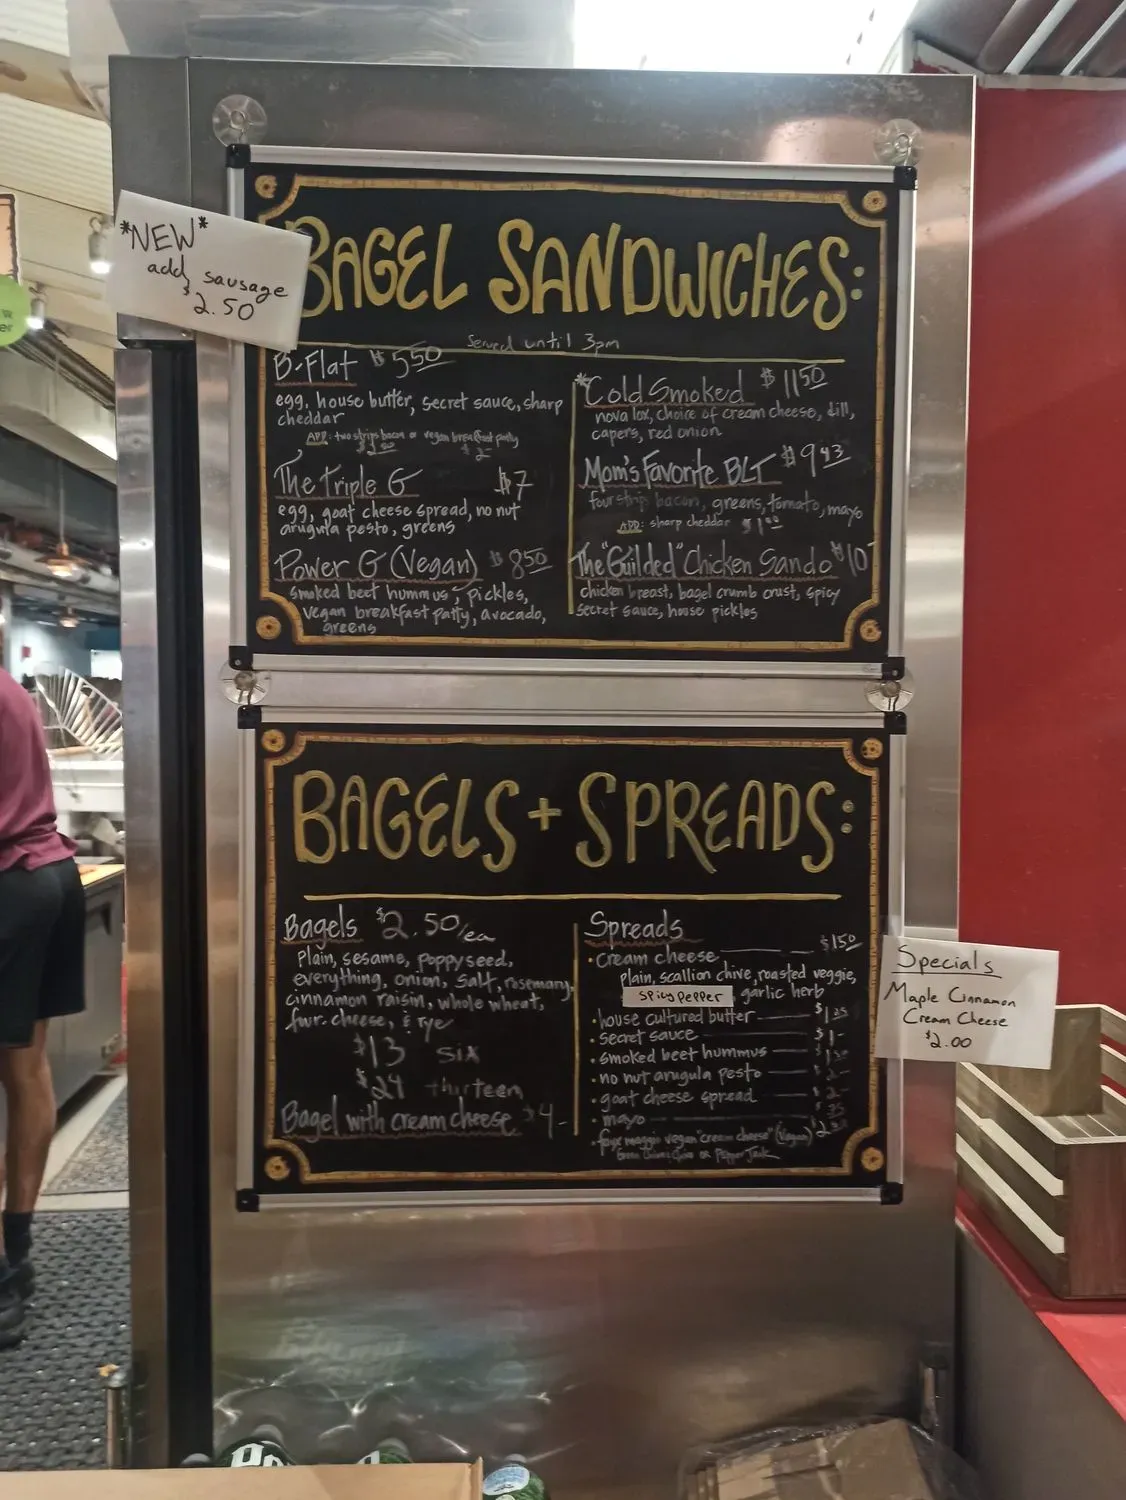 *NEW*
add sausage
$2.50
BAGEL SANDWICHES:
Served until 3pm
B-Flat $5.50
egg, house butter, secret sauce, sharp
cheddar
ADD: two strips bacon or vegan breakfast patty
The Triple G $7
egg, goat cheese spread, no nut
arugula pesto, greens
Power G (Vegan) $8.50
smoked beet hummus, pickles,
vegan breakfast patty, avocado,
greens
*Cold Smoked $11.50
nova lox, choice of cream cheese, dill,
capers, red onion
Mom's Favorite BLT $9.43
four strips bacon, greens, tomato, mayo
ADD: sharp cheddar
The "Guilded" Chicken Sando $10
chicken breast, bagel crumb crust, spicy
secret sauce, house pickles
BAGELS + SPREADS:
Bagels $2.50/ea
Plain, sesame, poppyseed,
everything, onion, salt, rosemary,
cinnamon raisin, whole wheat,
four cheese, & rye
$13 six
$24 thirteen
Bagel with cream cheese $4-
Spreads
• cream cheese $1.50
plain, scallion chive, roasted veggie,
spicy pepper, garlic herb
• house cultured butter
• secret sauce $1-
• smoked beet hummus
• no nut arugula pesto $2-
• goat cheese spread $2-
• mayo
vegan "cream cheese" (vegan)
or Pepper Jack
Specials
Maple Cinnamon
Cream Cheese
$2.00